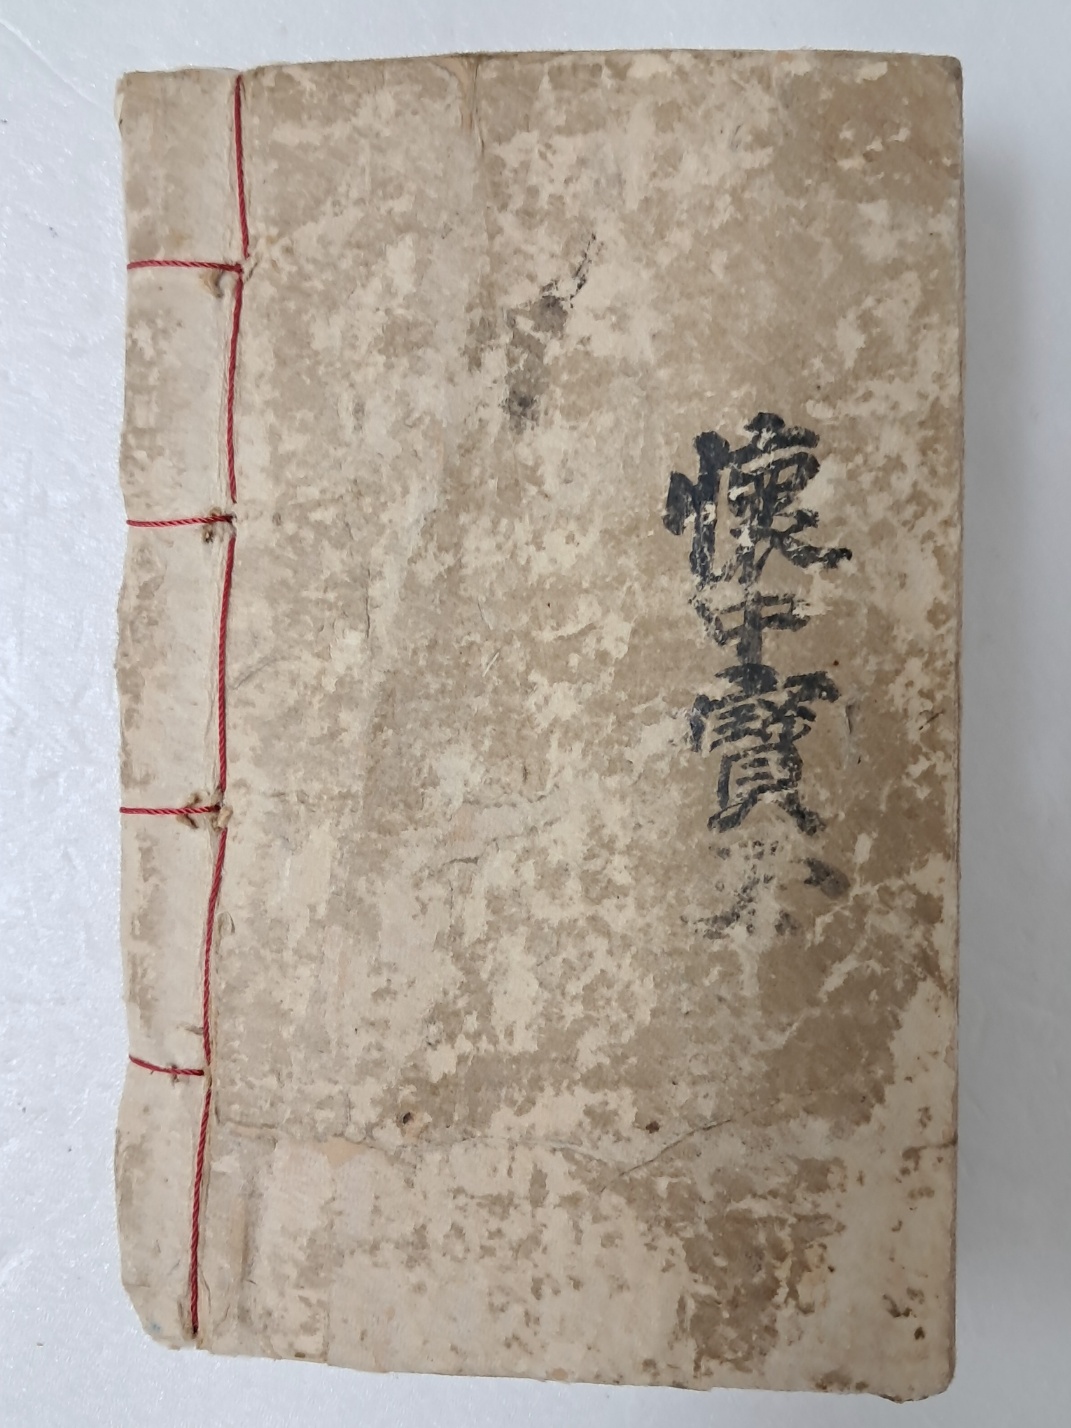 懷中寶